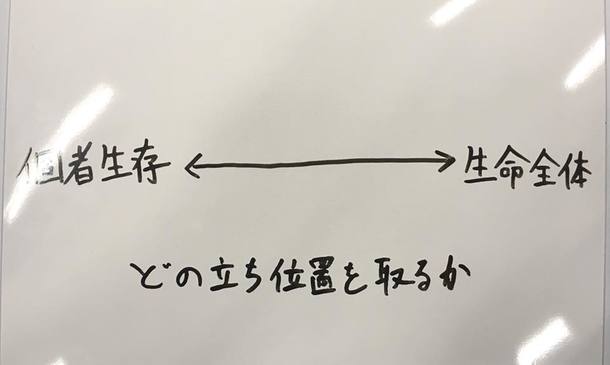 個者生存 ↔ 生命全体
どの立ち位置を取るか